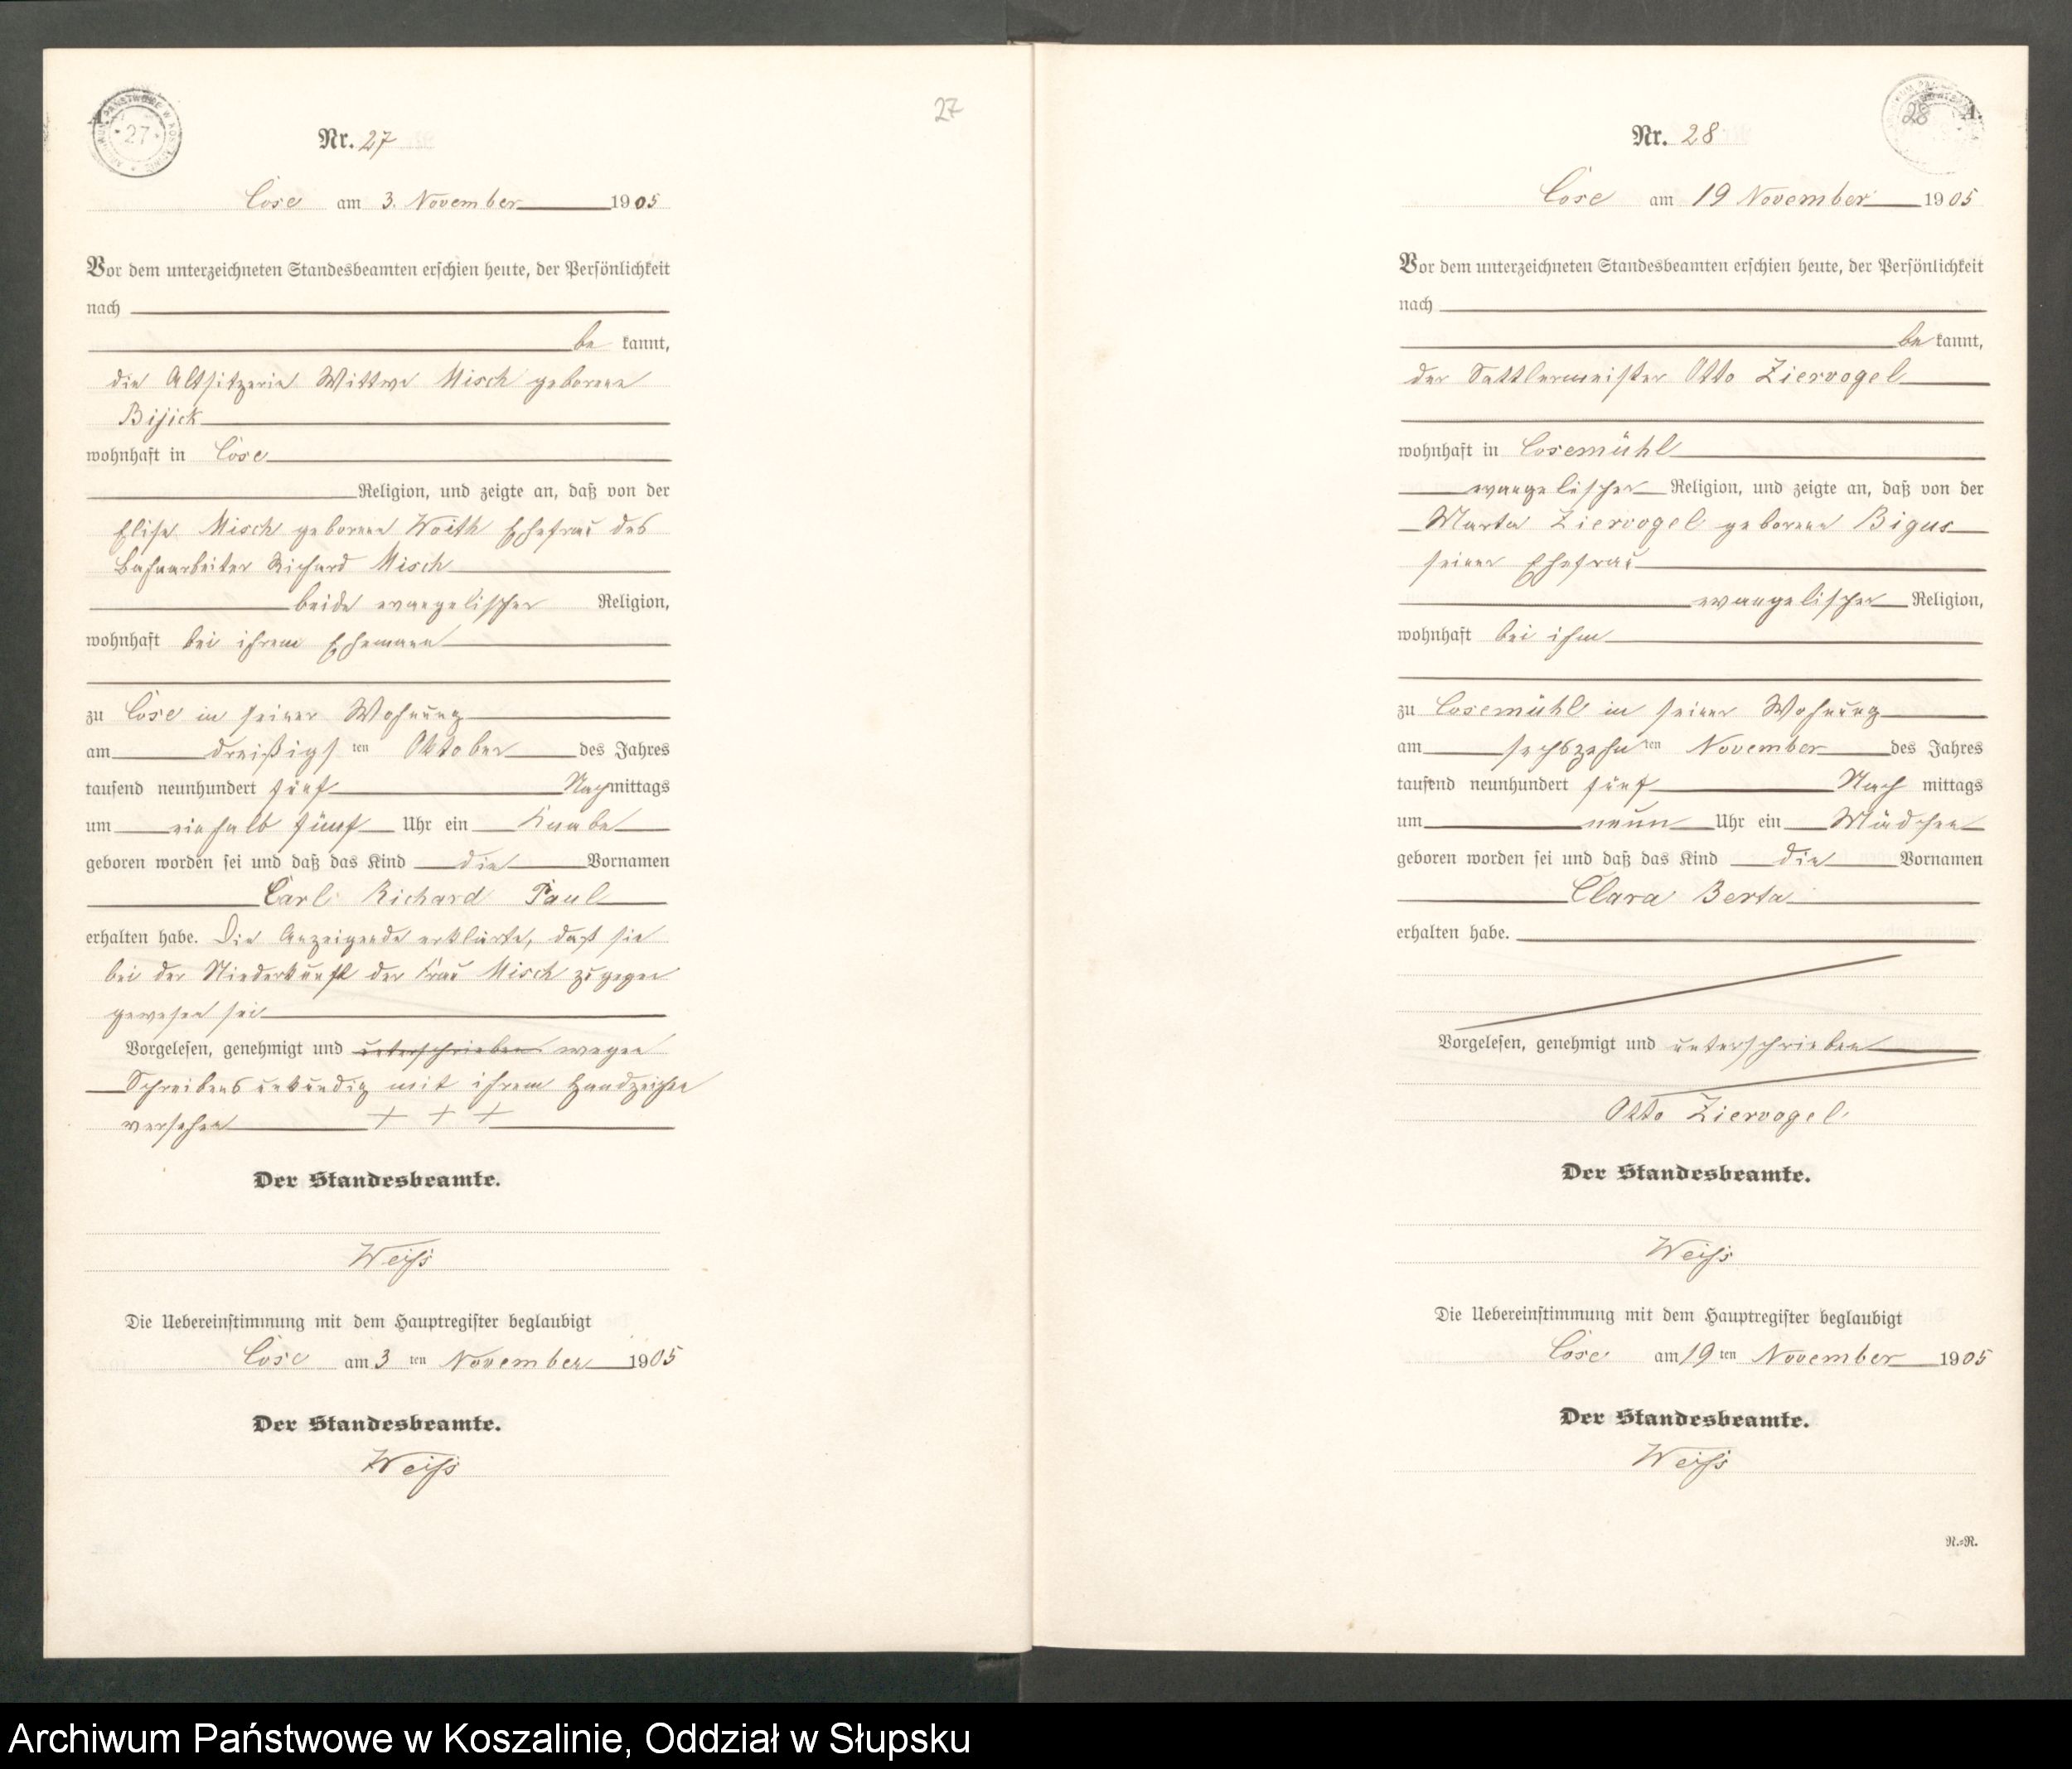 ARCHIWUM PAŃSTWOWE W KOSZALINIE
27
27
Nr. 27
Cose am 3. November 1905
Vor dem unterzeichneten Standesbeamten erschien heute, der Persönlichkeit
nach
be kannt,
die Altsitzerin Wittwe Misch geborene
Bijick
wohnhaft in Cose
Religion, und zeigte an, daß von der
Elise Misch geborene Woith Ehefrau des
Bahnarbeiter Richard Misch
beide evangelischer Religion,
wohnhaft bei ihrem Ehemann
zu Cose in seiner Wohnung
am dreißigs ten Oktober des Jahres
tausend neunhundert fünf Nachmittags
um einhalb fünf Uhr ein Knabe
geboren worden sei und daß das Kind die Vornamen
Carl Richard Paul
erhalten habe. Die Anzeigende erklärte, daß sie
bei der Niederkunft der Frau Misch zugegen
gewesen sei
Vorgelesen, genehmigt und unterschrieben wegen
Schreibensunkundig mit ihrem Handzeichen
versehen + + +
Der Standesbeamte.
Weiss
Die Uebereinstimmung mit dem Hauptregister beglaubigt
Cose am 3 ten November 1905
Der Standesbeamte.
Weiss
28
Nr. 28
Cose am 19 November 1905
Vor dem unterzeichneten Standesbeamten erschien heute, der Persönlichkeit
nach
be kannt,
der Sattlermeister Otto Ziervogel
wohnhaft in Cosemühl
evangelischer Religion, und zeigte an, daß von der
Marta Ziervogel geborene Bigus
seiner Ehefrau
evangelischer Religion,
wohnhaft bei ihm
zu Cosemühl in seiner Wohnung
am sechszehn ten November des Jahres
tausend neunhundert fünf Nach mittags
um neun Uhr ein Mädchen
geboren worden sei und daß das Kind die Vornamen
Clara Berta
erhalten habe.
Vorgelesen, genehmigt und unterschrieben
Otto Ziervogel
Der Standesbeamte.
Weiss
Die Uebereinstimmung mit dem Hauptregister beglaubigt
Cose am 19 ten November 1905
Der Standesbeamte.
Weiss
N.=R.
Archiwum Państwowe w Koszalinie, Oddział w Słupsku